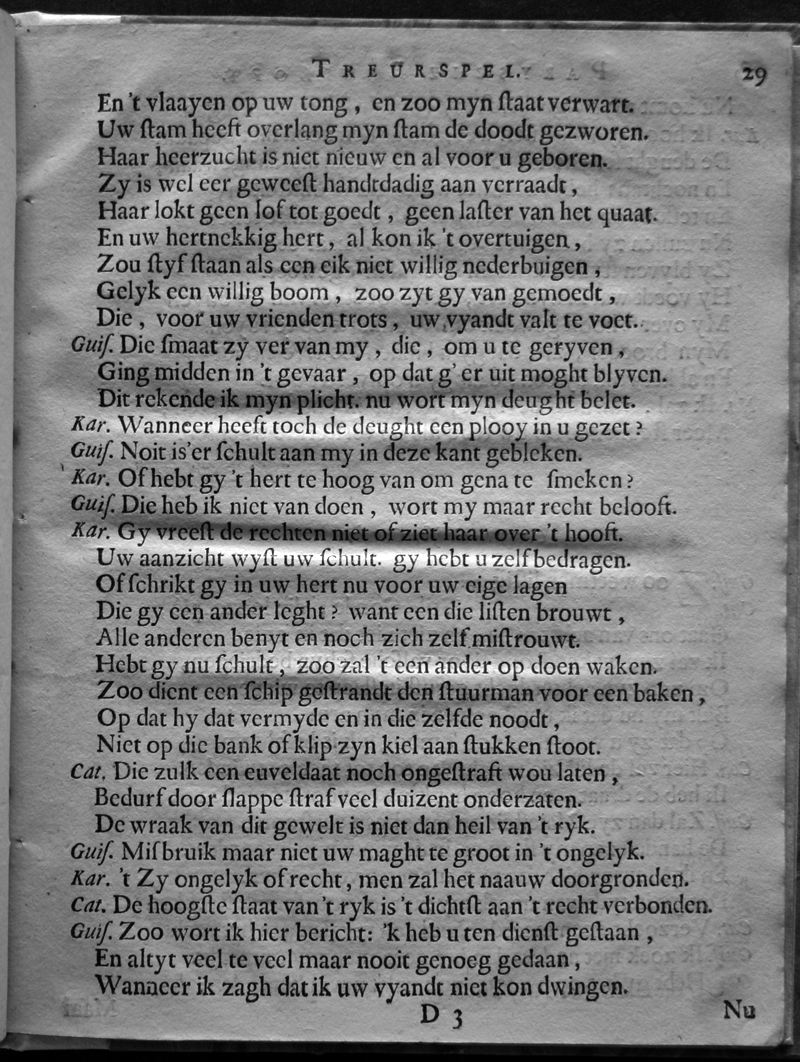 TREURSPEL. 29
En 't vlaayen op uw tong, en zoo myn ſtaat verwart.
Uw ſtam heeft overlang myn ſtam de doodt gezworen.
Haar heerzucht is niet nieuw en al voor u geboren.
Zy is wel eer geweeſt handtdadig aan verraadt,
Haar lokt geen lof tot goedt, geen laſter van het quaat.
En uw hertnekkig hert, al kon ik 't overtuigen,
Zou ſtyf ſtaan als een eik niet willig nederbuigen,
Gelyk een willig boom, zoo zyt gy van gemoedt,
Die, voor uw vrienden trots, uw vyandt valt te voet.
Guiſ. Die ſmaat zy ver van my, die, om u te geryven,
Ging midden in 't gevaar, op dat g' er uit moght blyven.
Dit rekende ik myn plicht. nu wort myn deught belet.
Kar. Wanneer heeft toch de deught een plooy in u gezet?
Guiſ. Noit is'er ſchult aan my in deze kant gebleken.
Kar. Of hebt gy 't hert te hoog van om gena te ſmeken?
Guiſ. Die heb ik niet van doen, wort my maar recht belooft.
Kar. Gy vreeſt de rechten niet of ziet haar over 't hooft.
Uw aanzicht wyſt uw ſchult. gy hebt u zelf bedragen.
Of ſchrikt gy in uw hert nu voor uw eige lagen
Die gy een ander leght? want een die liſten brouwt,
Alle anderen benyt en noch zich zelf miſtrouwt.
Hebt gy nu ſchult, zoo zal 't een ander op doen waken.
Zoo dient een ſchip geſtrandt den ſtuurman voor een baken,
Op dat hy dat vermyde en in die zelfde noodt,
Niet op die bank of klip zyn kiel aan ſtukken ſtoot.
Cat. Die zulk een euveldaat noch ongeſtraft wou laten,
Bedurf door ſlappe ſtraf veel duizent onderzaten.
De wraak van dit gewelt is niet dan heil van 't ryk.
Guiſ. Miſbruik maar niet uw maght te groot in 't ongelyk.
Kar. 't Zy ongelyk of recht, men zal het naauw doorgronden.
Cat. De hoogſte ſtaat van 't ryk is 't dichtſt aan 't recht verbonden.
Guiſ. Zoo wort ik hier bericht: 'k heb u ten dienſt geſtaan,
En altyt veel te veel maar nooit genoeg gedaan,
Wanneer ik zagh dat ik uw vyandt niet kon dwingen.
D 3 Nu